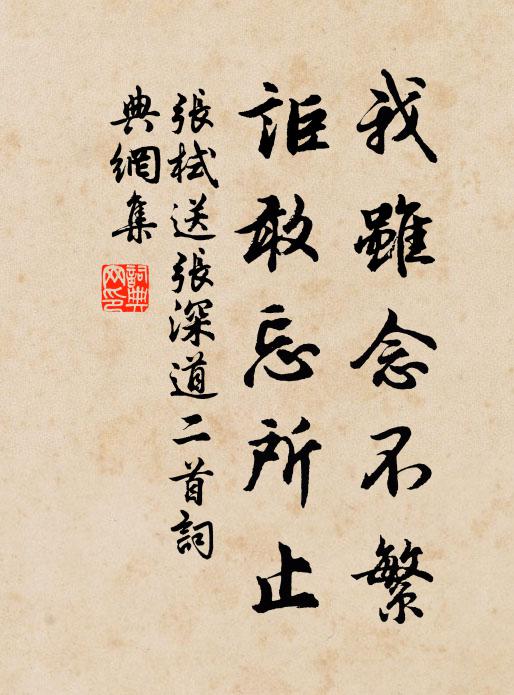 我雖念不繁
詎敢忘所止
張栻送張深道二首詞
典網集
詞典网印